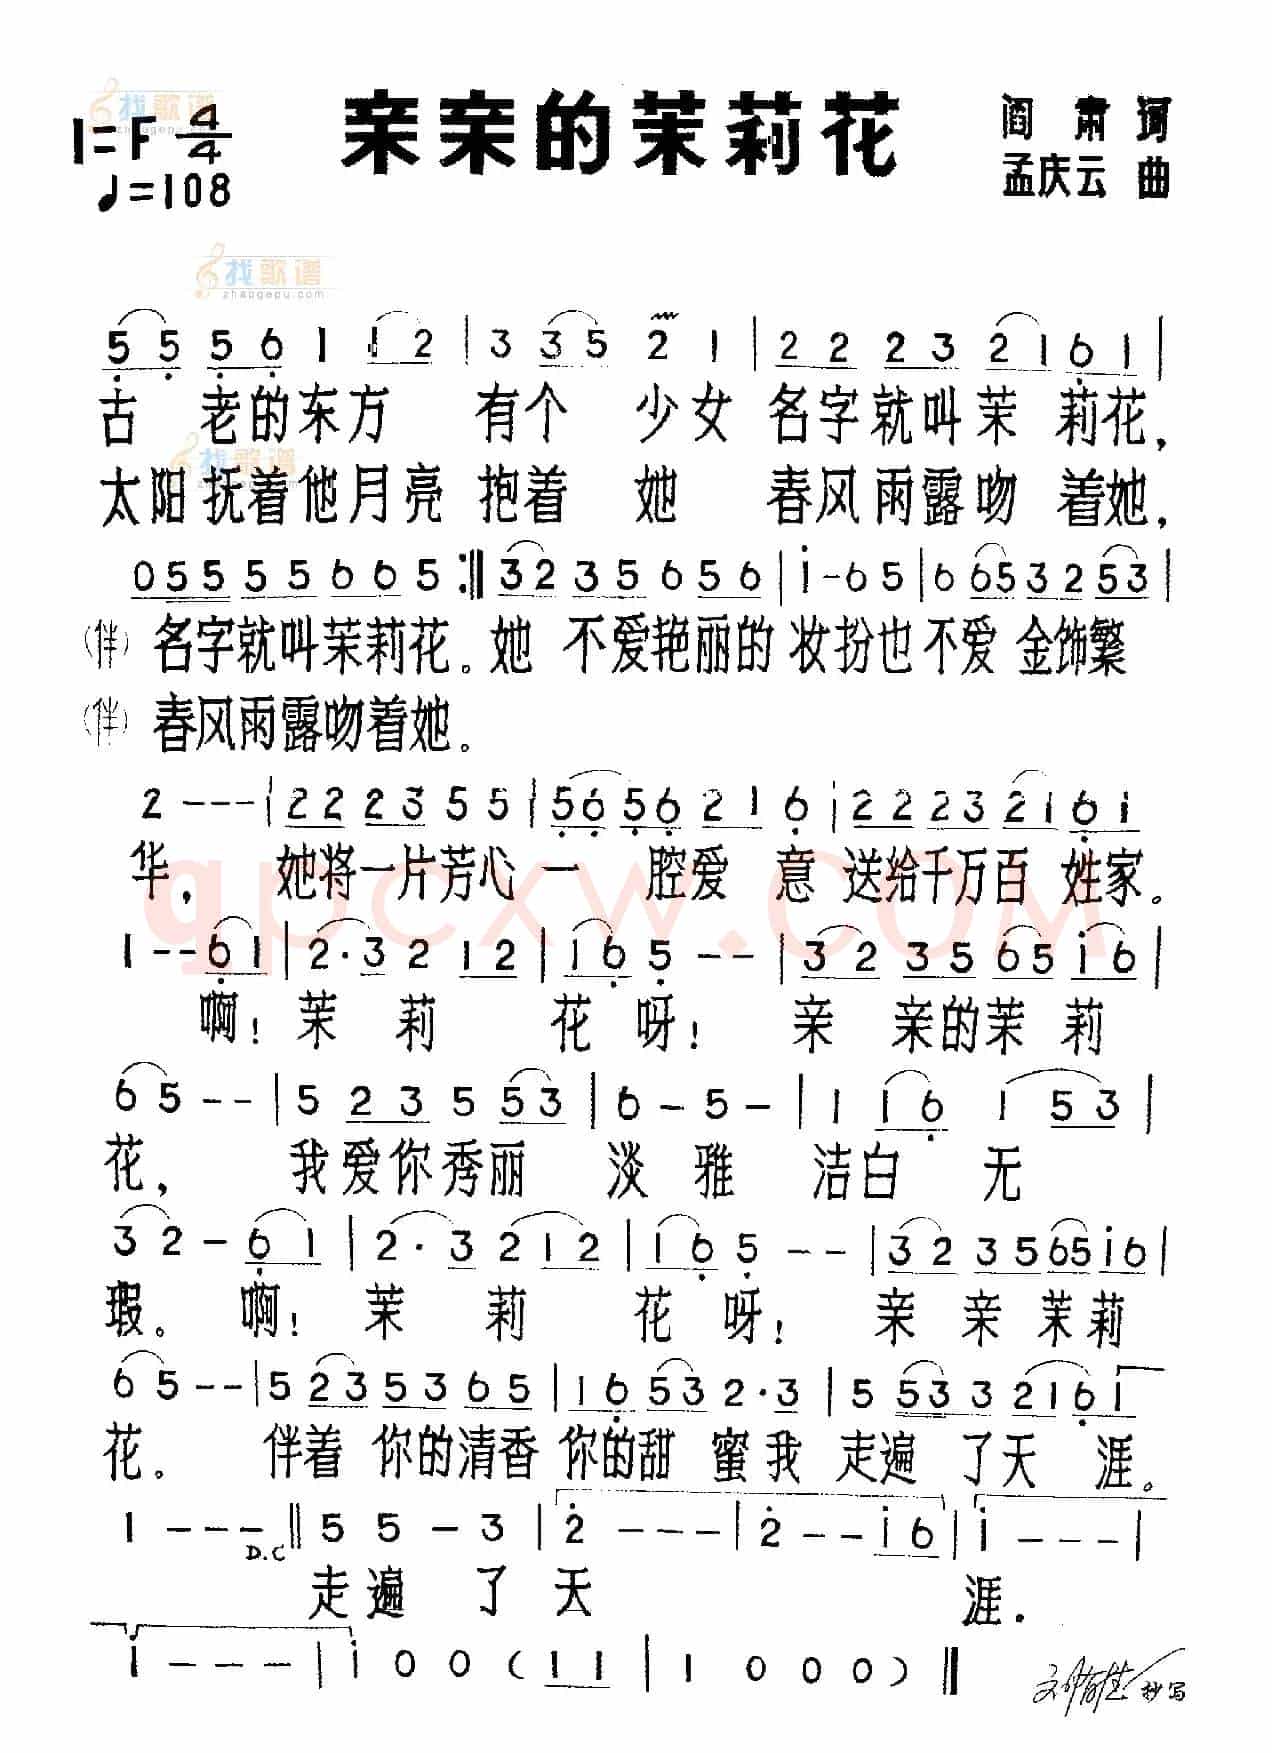 找歌谱
zhaogepu.com
1=F 4/4
亲亲的茉莉花
阎 肃 词
♩=108
孟庆云 曲
找歌谱
zhaogepu.com
5 5 5 6 1 1 2 | 3 3 5 2 1 | 2 2 2 3 2 1 6 1 |
古 老的东方 有个 少女 名字就叫茉 莉花,
找歌谱
太阳抚着他月亮 抱着 她 春风雨露吻 着她,
0 5 5 5 5 6 6 5 :‖ 3 2 3 5 6 5 6 | i - 6 5 | 6 6 5 3 2 5 3 |
(伴) 名字就叫茉莉花。她 不爱艳丽的 妆扮也不爱 金饰繁
(伴) 春风雨露吻着她。
2 - - - | 2 2 2 3 5 5 | 5 6 5 6 2 1 6 | 2 2 2 3 2 1 6 1 |
华, 她将一片芳心一 腔爱 意 送给千万百 姓家。
qpcxw.COM
1 - - 6 1 | 2 · 3 2 1 2 | 1 6 5 - - | 3 2 3 5 6 5 i 6 |
啊! 茉 莉 花 呀! 亲 亲的茉 莉
6 5 - - | 5 2 3 5 5 3 | 6 - 5 - | 1 1 6 1 5 3 |
花, 我爱你秀丽 淡 雅 洁白 无
3 2 - 6 1 | 2 · 3 2 1 2 | 1 6 5 - - | 3 2 3 5 6 5 i 6 |
瑕。 啊! 茉 莉 花 呀! 亲 亲 茉莉
6 5 - - | 5 2 3 5 3 6 5 | 1 6 5 3 2 · 3 | 5 5 3 3 2 1 6 1 |
花。 伴着 你的清香 你的甜 蜜我 走遍 了天 涯。
1 - - - ‖ 5 5 - 3 | 2 - - - | 2 - - i 6 | i - - - |
D.C
走遍 了 天 涯.
i - - - | i 0 0 ( 1 1 | 1 0 0 0 ) ‖
抄写